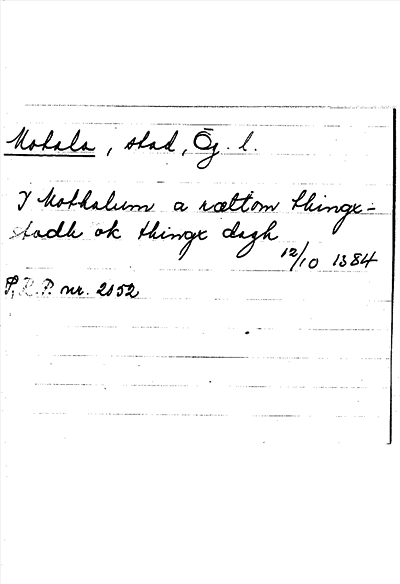 Motala, stad, Ög. l.
I Mothalum a rættom thingx-
stadh ok thingx dagh
12/10 1384
S.R.P. nr. 2052